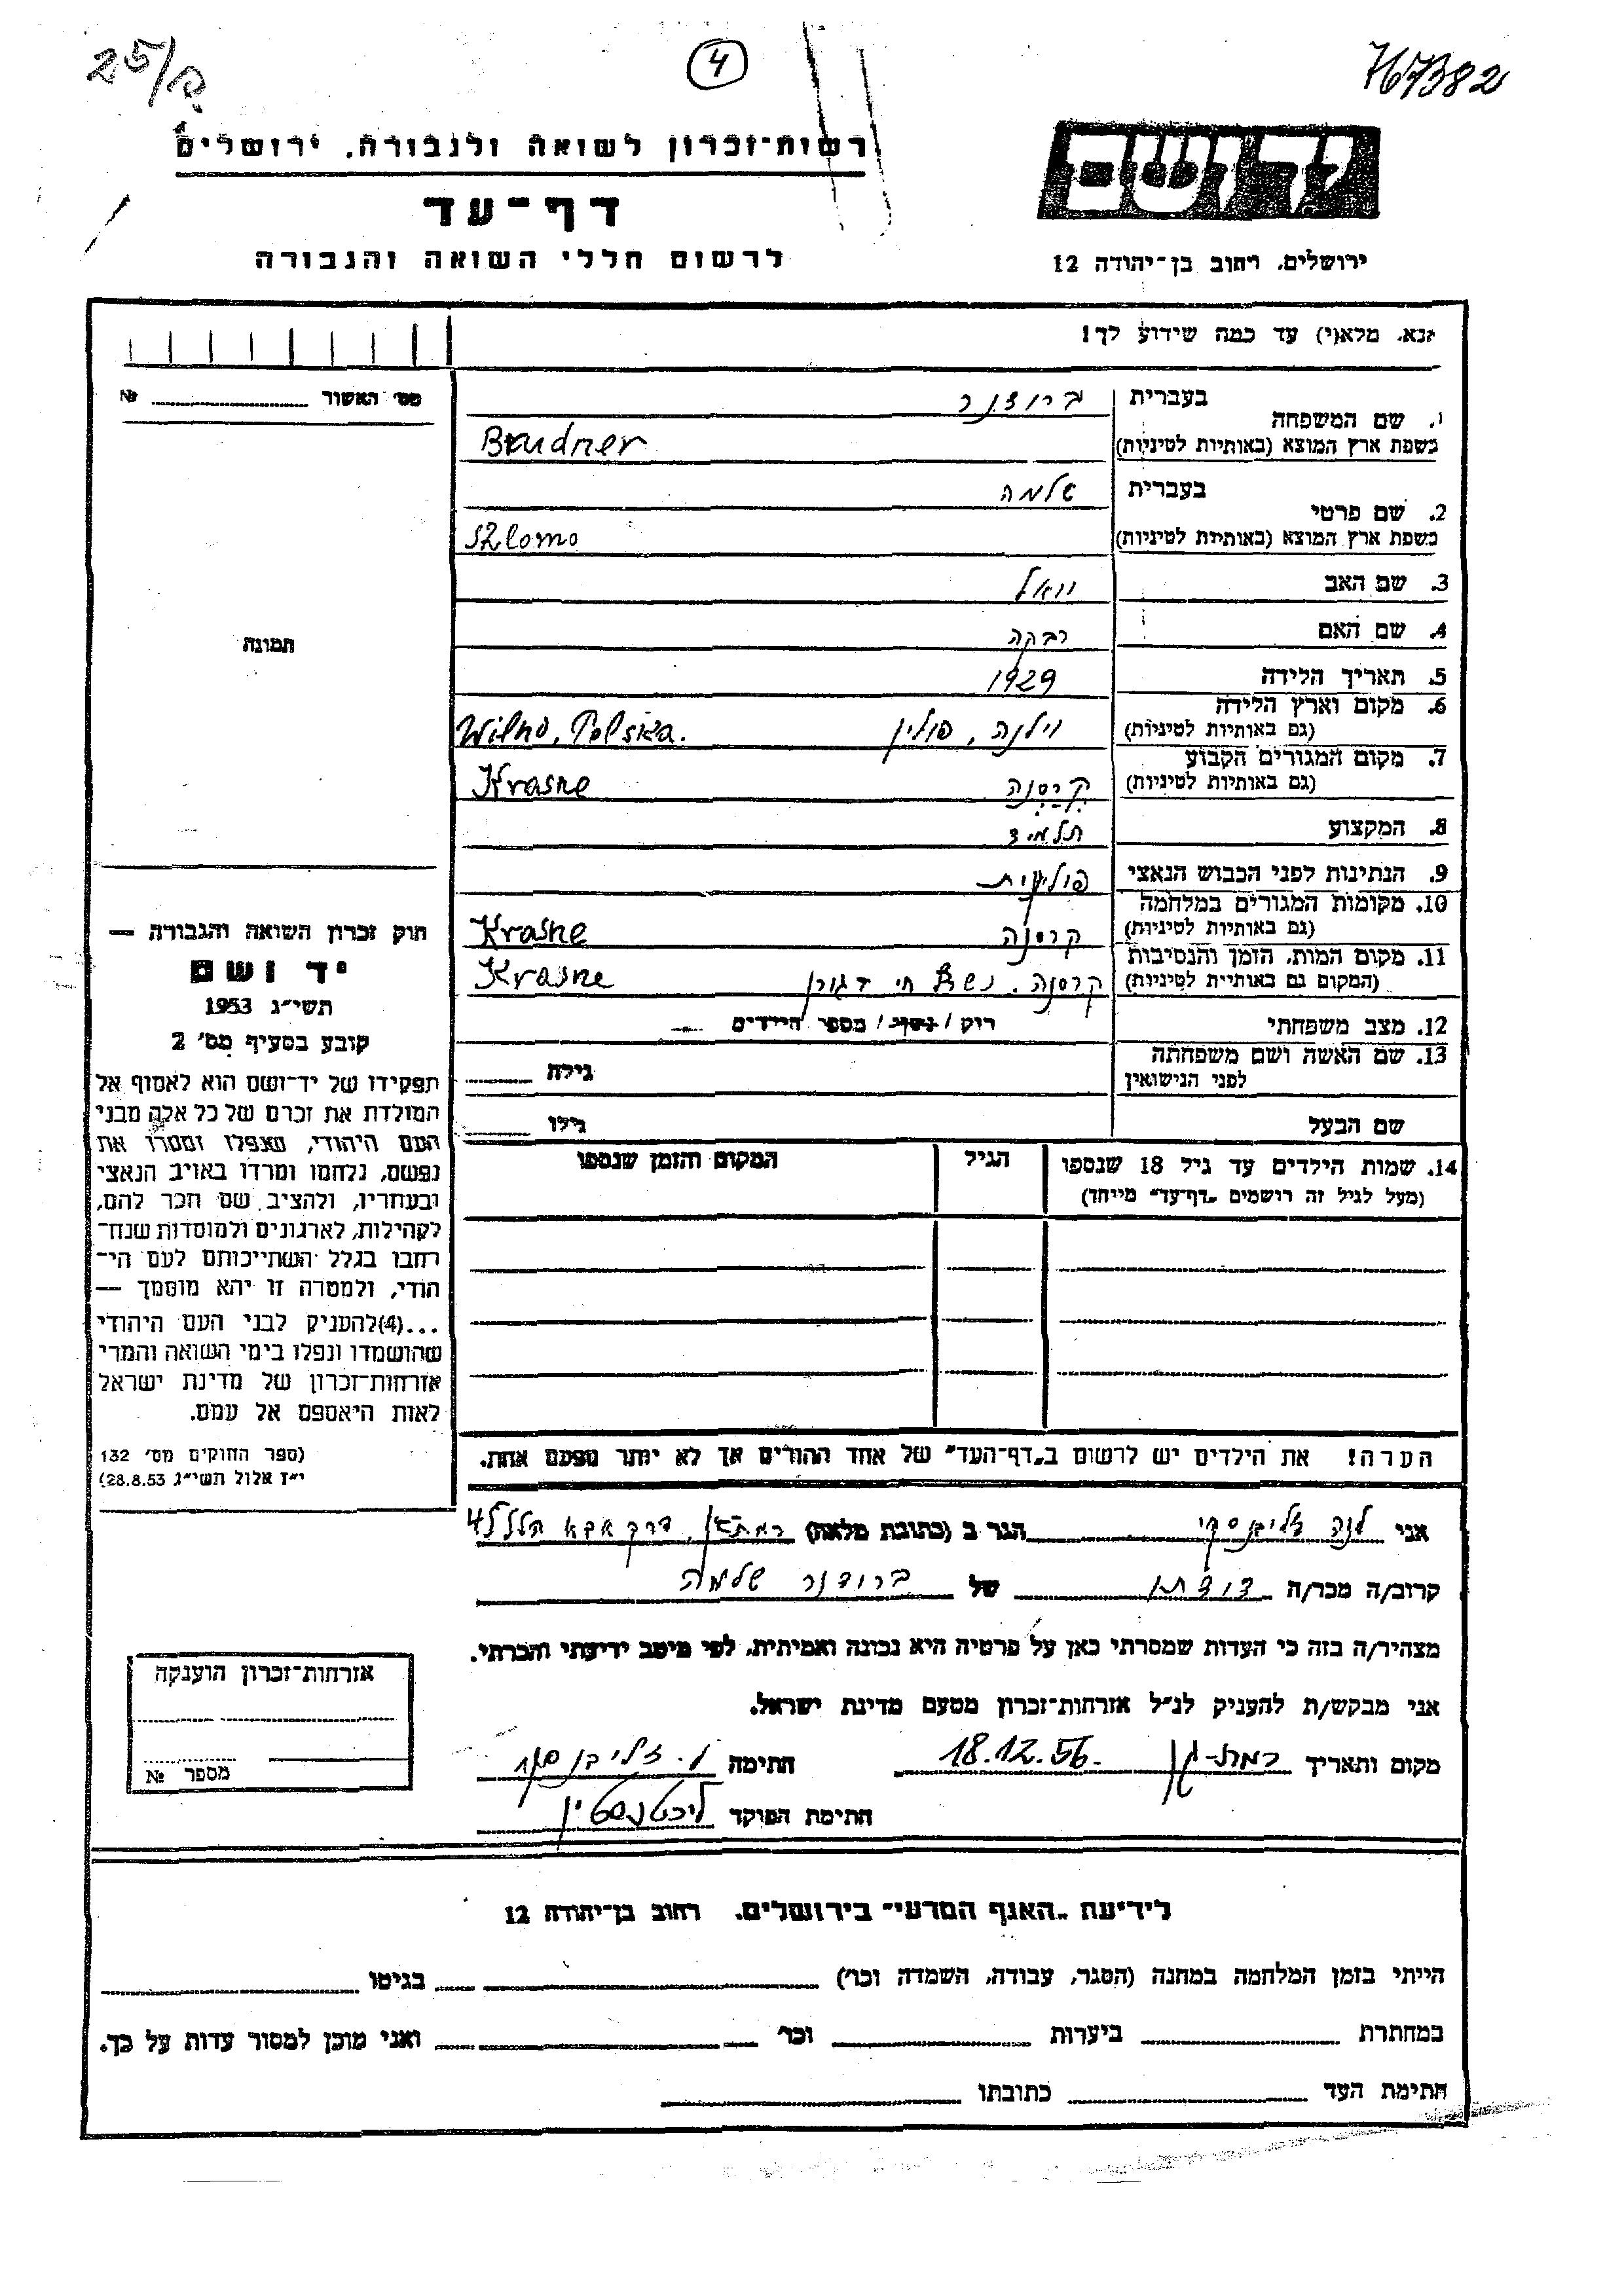 25/ק
4
767382
רשות־זכרון לשואה ולגבורה, ירושלים
דף־עד
לרשום חללי השואה והגבורה
יד ושם
ירושלים, רחוב בן־יהודה 12
נא, מלא(י) עד כמה שידוע לך!
מס' האשור № 
תמונה
1. שם המשפחה
בעברית ברודנר
בשפת ארץ המוצא (באותיות לטיניות) Brudner
2. שם פרטי
בעברית שלמה
בשפת ארץ המוצא (באותיות לטיניות) Szlomo
3. שם האב יואל
4. שם האם רבקה
5. תאריך הלידה 1929
6. מקום וארץ הלידה
(גם באותיות לטיניות) וילנה, פולין Wilno, Polska.
7. מקום המגורים הקבוע
(גם באותיות לטיניות) קרסנה Krasne
8. המקצוע תלמיד
9. הנתינות לפני הכבוש הנאצי פולנית
10. מקומות המגורים במלחמה
(גם באותיות לטיניות) קרסנה Krasne
11. מקום המות, הזמן והנסיבות
(המקום גם באותיות לטיניות) קרסנה. נשרף חי בגורן Krasne
12. מצב משפחתי רוק / נשוי / מספר הילדים —
13. שם האשה ושם משפחתה
לפני הנישואין גילה
שם הבעל גילו
14. שמות הילדים עד גיל 18 שנספו
(מעל לגיל זה רושמים „דף־עד" מיוחד)
הגיל
המקום והזמן שנספו
חוק זכרון השואה והגבורה —
יד ושם
תשי"ג 1953
קובע בסעיף מס' 2
תפקידו של יד־ושם הוא לאסוף אל
המולדת את זכרם של כל אלה מבני
העם היהודי, שנפלו ומסרו את
נפשם, נלחמו ומרדו באויב הנאצי
ובעוזריו, ולהציב שם וזכר להם,
לקהילות, לארגונים ולמוסדות שנח־
רבו בגלל השתייכותם לעם הי־
הודי, ולמטרה זו יהא מוסמך —
...(4)להעניק לבני העם היהודי
שהושמדו ונפלו בימי השואה והמרי
אזרחות־זכרון של מדינת ישראל
לאות היאספם אל עמם.
(ספר החוקים מס' 132
י"ז אלול תשי"ג 28.8.53)
הערה! את הילדים יש לרשום ב„דף־העד" של אחד ההורים אך לא יותר מפעם אחת.
אני לנה הגר ב (כתובת מלאה) רמת־גן, דרך אבא הלל 47
קרוב/ה מכר/ה דודתו של ברודנר שלמה
מצהיר/ה בזה כי העדות שמסרתי כאן על פרטיה היא נכונה ואמיתית, לפי מיטב ידיעתי והכרתי.
אני מבקש/ת להעניק לנ"ל אזרחות־זכרון מטעם מדינת ישראל.
מקום ותאריך רמת-גן 18.12.56. חתימה
חתימת הפוקד ליכטנשטיין
אזרחות־זכרון הוענקה
מספר №
לידיעת „האגף המדעי" בירושלים, רחוב בן־יהודה 12
הייתי בזמן המלחמה במחנה (הסגר, עבודה, השמדה וכו') בגיטו
במחתרת ביערות וכו' ואני מוכן למסור עדות על כך.
חתימת העד כתובתו